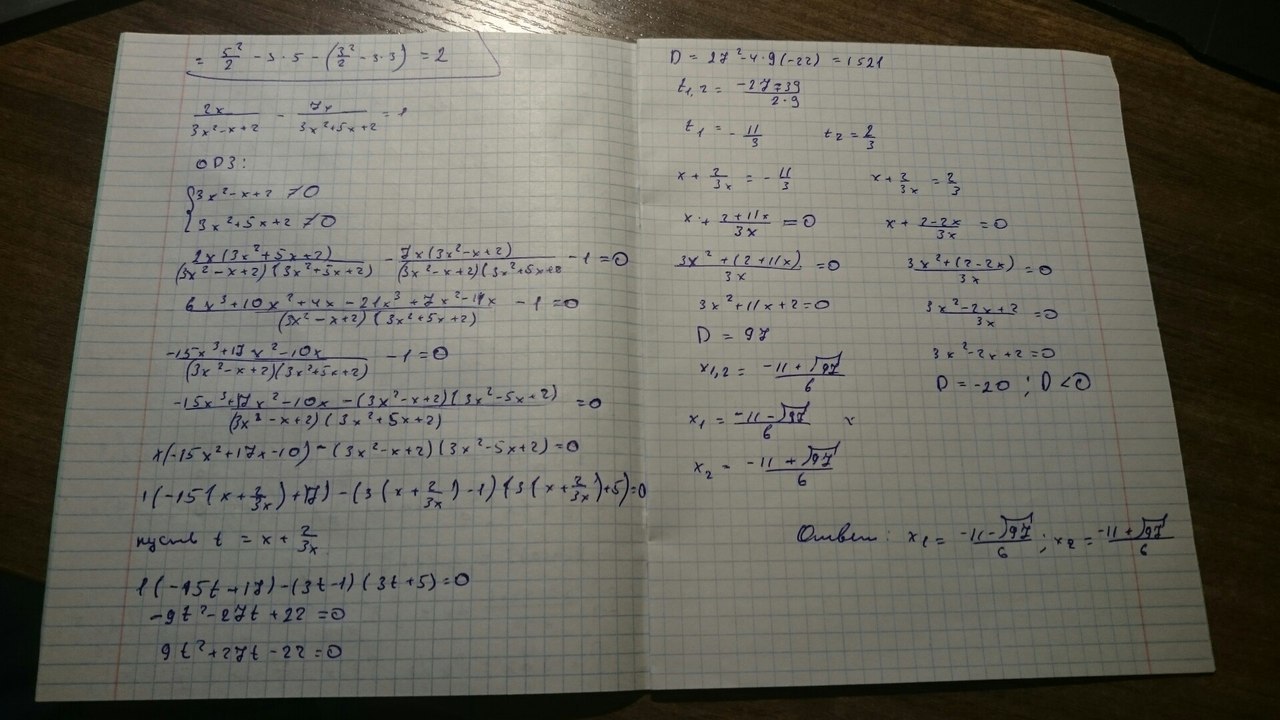 = 5²/2 - 3·5 - (3²/2 - 3·3) = 2
2x/(3x²-x+2) - 7x/(3x²+5x+2) = 1
ОДЗ:
{3x²-x+2 ≠0
{3x²+5x+2 ≠0
2x(3x²+5x+2)/((3x²-x+2)(3x²+5x+2)) - 7x(3x²-x+2)/((3x²-x+2)(3x²+5x+2 - 1 = 0
(6x³+10x²+4x-21x³+7x²-14x)/((3x²-x+2)(3x²+5x+2)) - 1 = 0
(-15x³+17x²-10x)/((3x²-x+2)(3x²+5x+2)) - 1 = 0
(-15x³+17x²-10x-(3x²-x+2)(3x²-5x+2))/((3x²-x+2)(3x²+5x+2)) = 0
x(-15x²+17x-10)-(3x²-x+2)(3x²-5x+2)=0
1(-15(x+2/3x)+17)-(3(x+2/3x)-1)(3(x+2/3x)+5)=0
пусть t = x + 2/3x
1(-15t+17)-(3t-1)(3t+5)=0
-9t²-27t+22=0
9t²+27t-22=0
D = 27²-4·9(-22) = 1521
t1,2 = (-27±39)/(2·9)
t1 = -11/3 t2 = 2/3
x + 2/3x = -11/3 x + 2/3x = 2/3
x + (2+11x)/3x = 0 x + (2-2x)/3x = 0
(3x²+(2+11x))/3x = 0 (3x²+(2-2x))/3x = 0
3x²+11x+2=0 (3x²-2x+2)/3x = 0
D = 97 3x²-2x+2=0
x1,2 = (-11±√97)/6 D = -20 ; D<0
x1 = (-11-√97)/6
x2 = (-11+√97)/6
Ответ: x1 = (-11-√97)/6 ; x2 = (-11+√97)/6